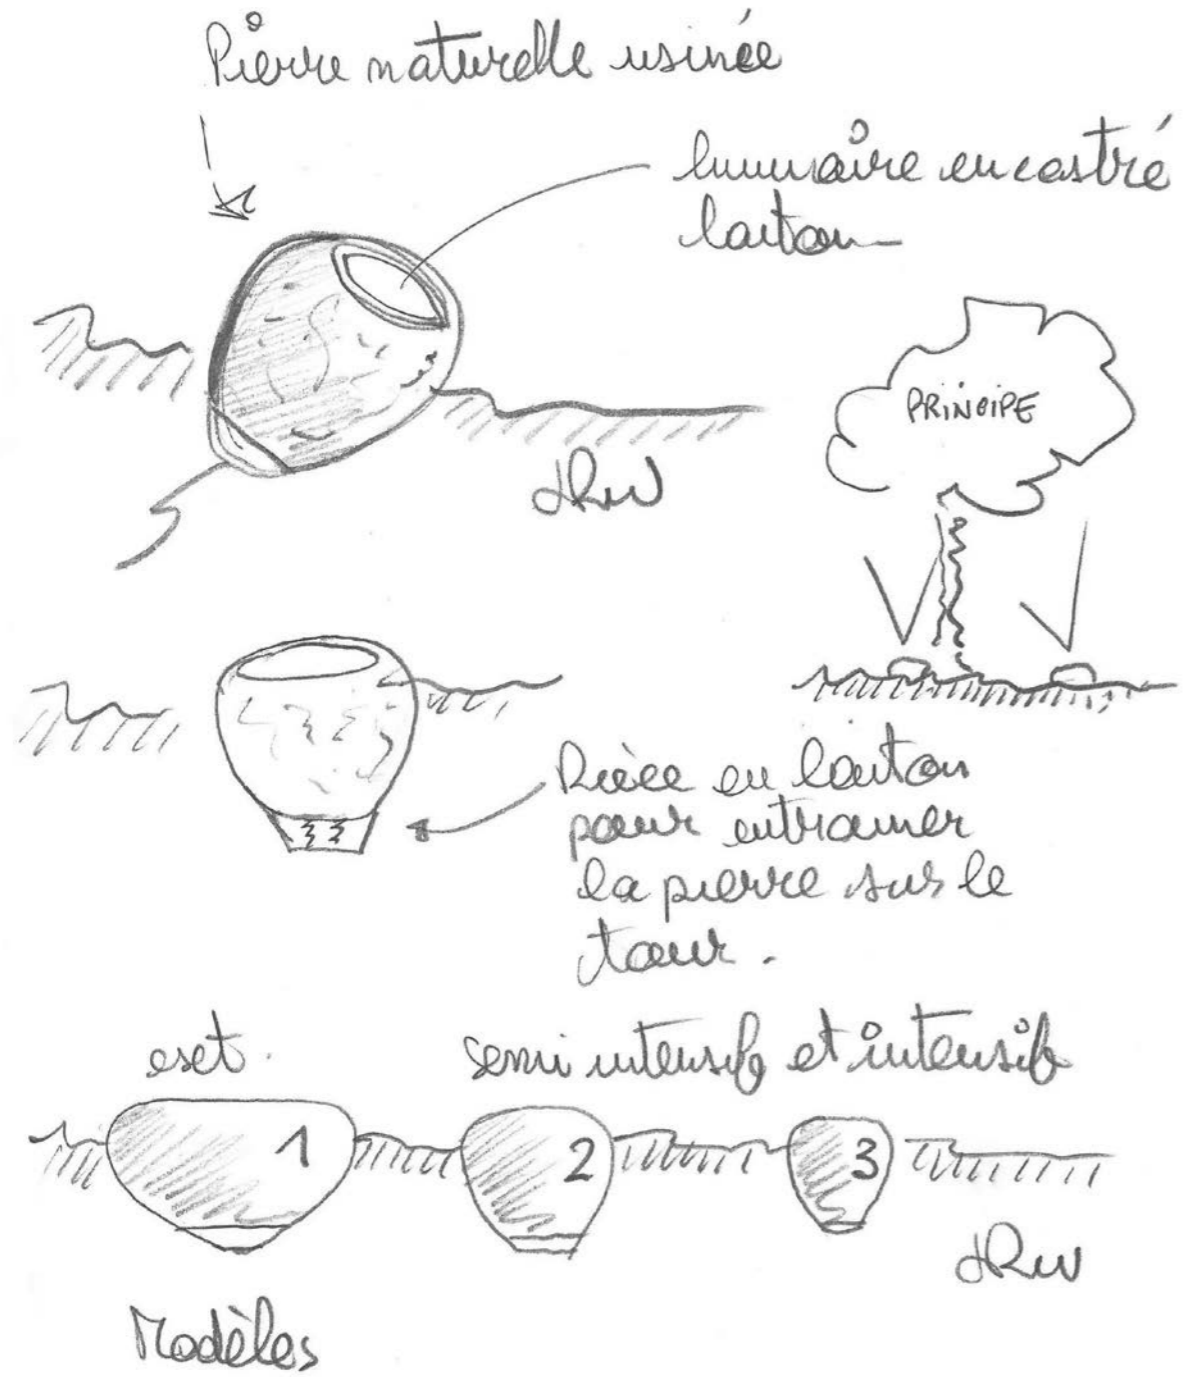 Pierre naturelle usinée
luminaire encastré
laiton
PRINCIPE
Pièce en laiton
pour entrainer
la pierre sur le
tour.
semi intensif et intensif
1
2
3
Modèles